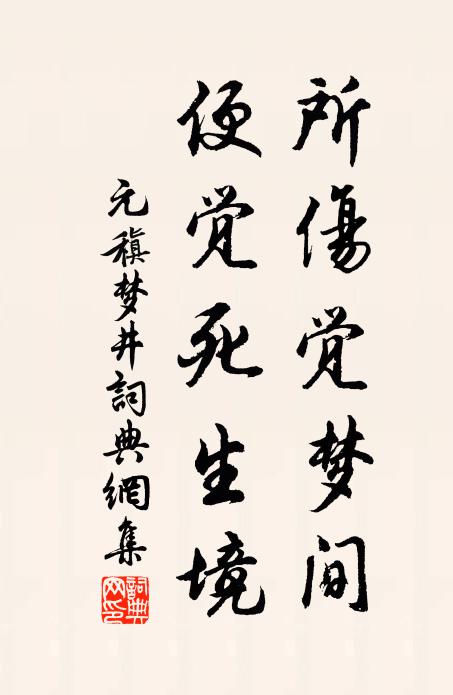 所傷觉梦间
便觉死生境
元稹梦井詞典網集
詞典
网印